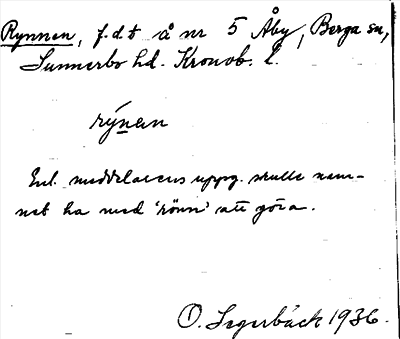 Rynnen, f.d.t å nr 5 Åby, Berga sn,
Sunnerbo hd. Kronob. l.
rýnan
Enl. meddelarens uppg. skulle nam-
net ha med 'rönn' att göra.
O. Segerbäck 1936.